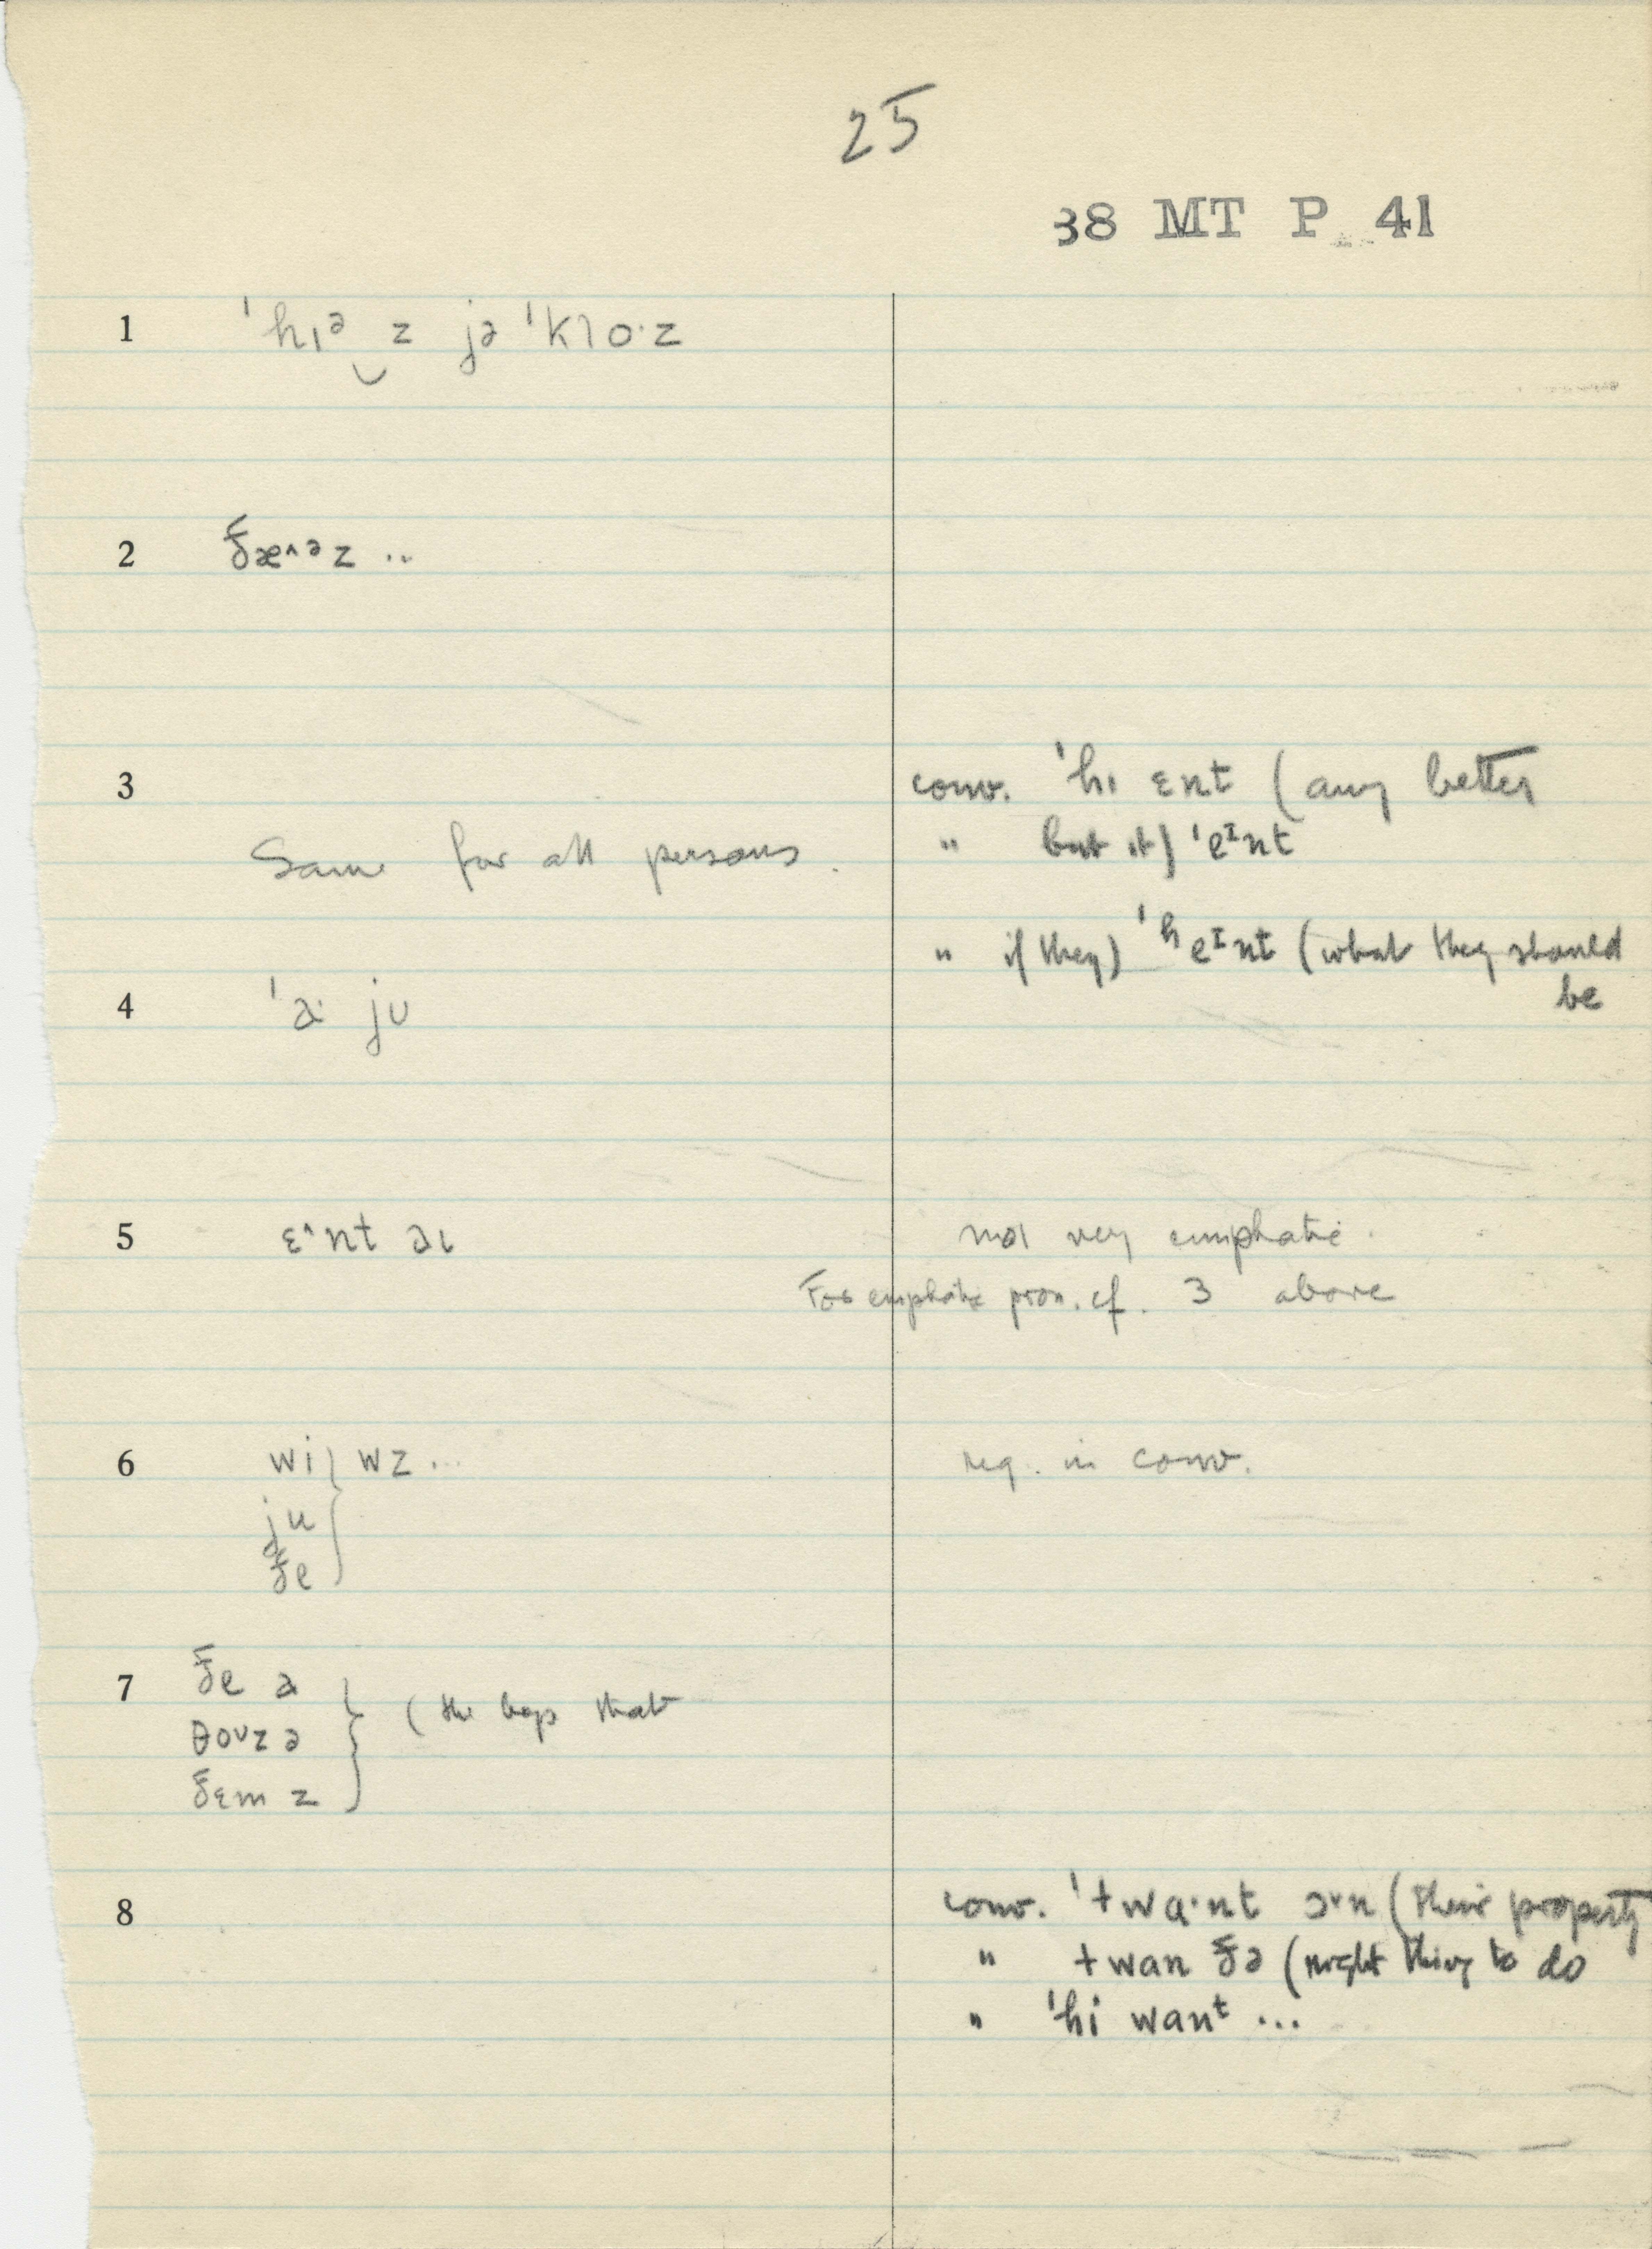 25
38 MT P 41
1 ˈhɪᵊ‿z jə ˈklo·z
2 ðæ^ᵊz ..
3 conv. ˈhɪ ɛnt (any better
" but it) ˈeᴵnt
Same for all persons.
" if they) ˈʰeᴵnt (what they should
be
4 ju
5 ɛ^nt əɪ not very emphatic.
For emphatic pron. cf. 3 above
6 wi } wz ... reg. in conv.
ju
ðe
7 ðe ə } (the boys that
θoᵘz ə
ðɛm z
8 conv. ˈtwɑ·nt ɔ˅n (their property
" twan ðə (right thing to do
" ˈhi wanᵗ ...